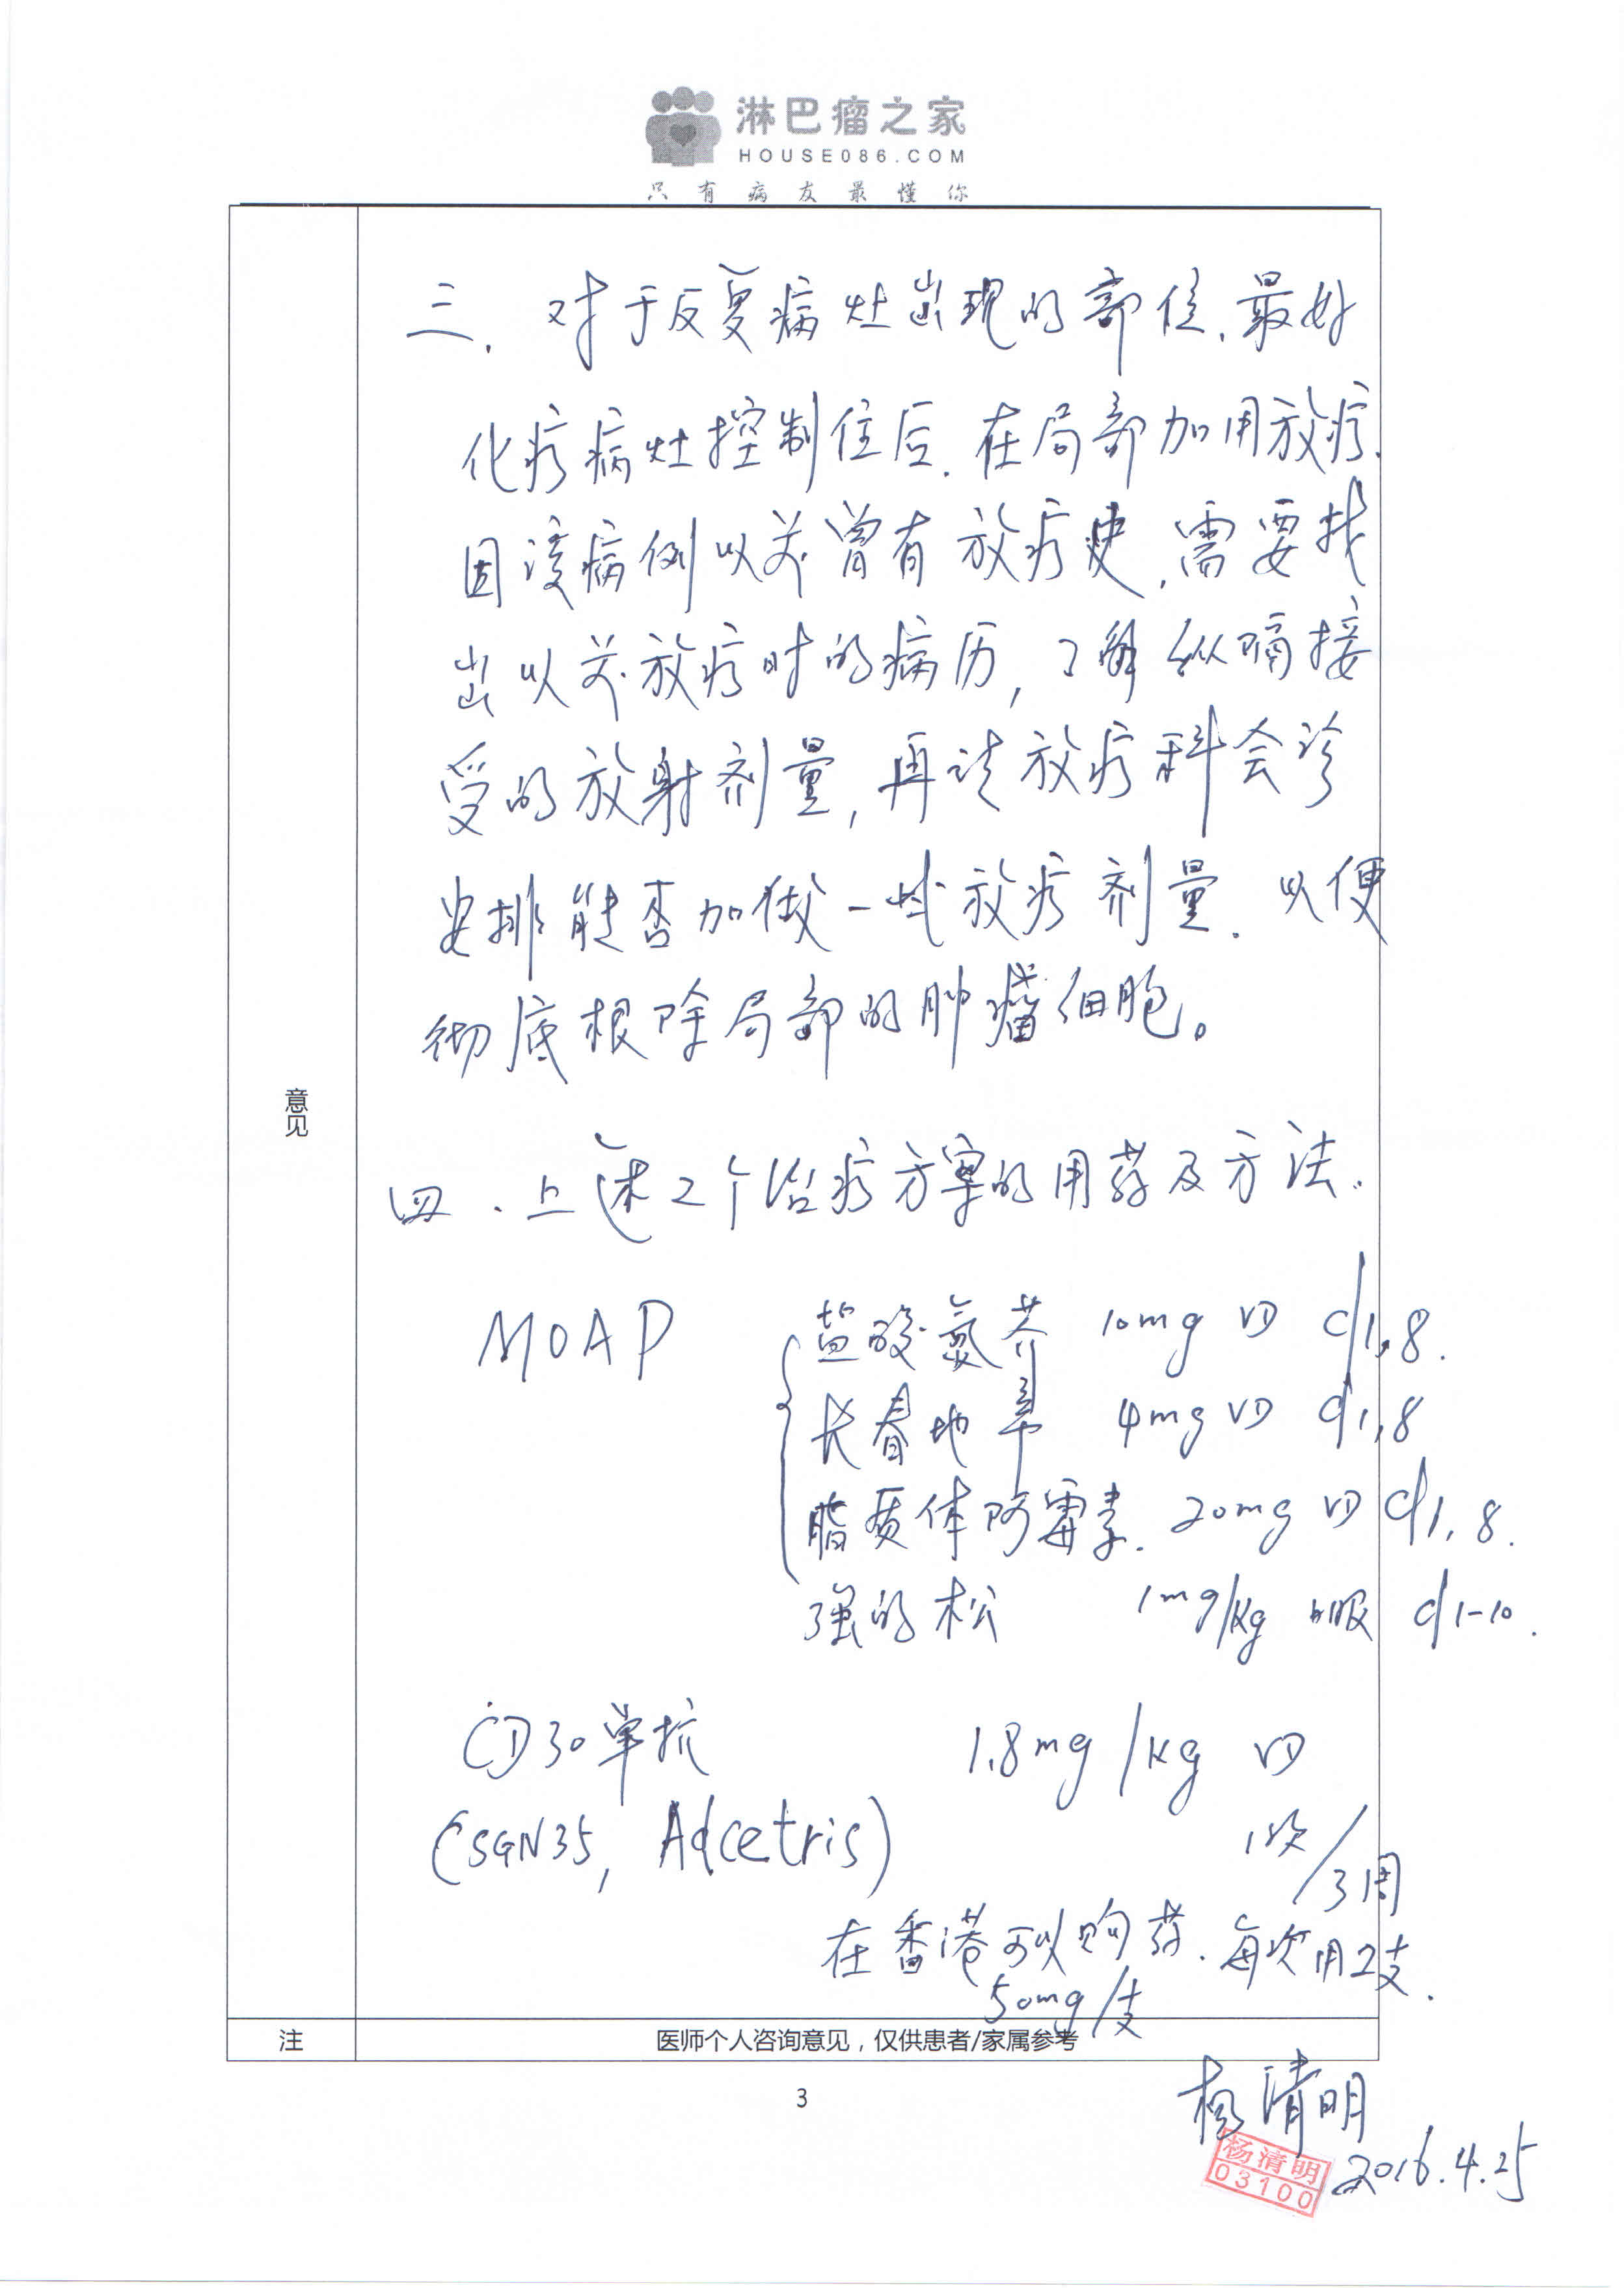 淋巴瘤之家
HOUSE086.COM
只有病友最懂你
三、对于反复病灶出现的部位,最好
化疗病灶控制住后,在局部加用放疗.
因该病例以前曾有放疗史,需要找
出以前放疗时的病历,了解纵隔接
受的放射剂量,再请放疗科会诊
安排能否加做一些放疗剂量.以便
彻底根除局部的肿瘤细胞。
意见
四、上述2个治疗方案的用药及方法.
MOAP
盐酸氮芥 10mg VD d1,8.
长春地辛 4mg VD d1,8
脂质体阿霉素. 20mg VD d1,8.
强的松 1mg/kg 口服 d1-10.
CD30单抗 1.8mg/kg VD
(SGN35, Adcetris) 1次/3周
在香港可以购药.每次用2支.
50mg/支
注 医师个人咨询意见，仅供患者/家属参考
3
杨清明
杨清明
03100
2016.4.25